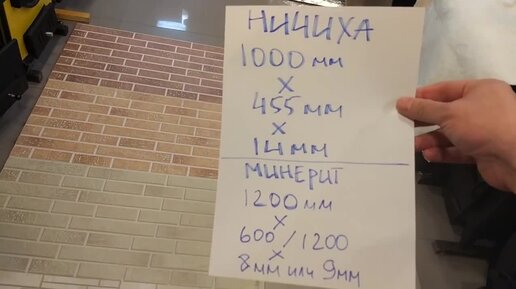 НИЧИХА
1000 мм
х
455 мм
х
14 мм
МИНЕРИТ
1200 мм
х
600/1200
х
8мм или 9мм